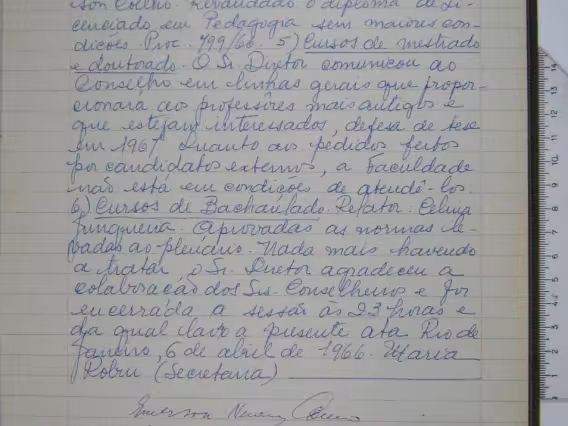 son Coelho. Revalidado o diploma de li-
cenciado em Pedagogia sem maiores con-
dições. Proc. 799/66. 5) Cursos de mestrado
e doutorado. O Sr. Diretor comunicou ao
Conselho em linhas gerais que propor-
cionara aos professôres mais antigos e
que estejam interessados, defesa de tese
em 1967. Quanto aos pedidos feitos
por candidatos externos, a Faculdade
não está em condições de atendê-los.
6) Cursos de Bacharelado. Relator: Celina
Junqueira. Aprovadas as normas le-
vadas ao plenário. Nada mais havendo
a tratar, o Sr. Diretor agradeceu a
colaboração dos Srs. Conselheiros e foi
encerrada a sessão às 23 horas e
da qual lavro a presente ata. Rio de
Janeiro, 6 de abril de 1966. Maria
(Secretaria)
Emerson